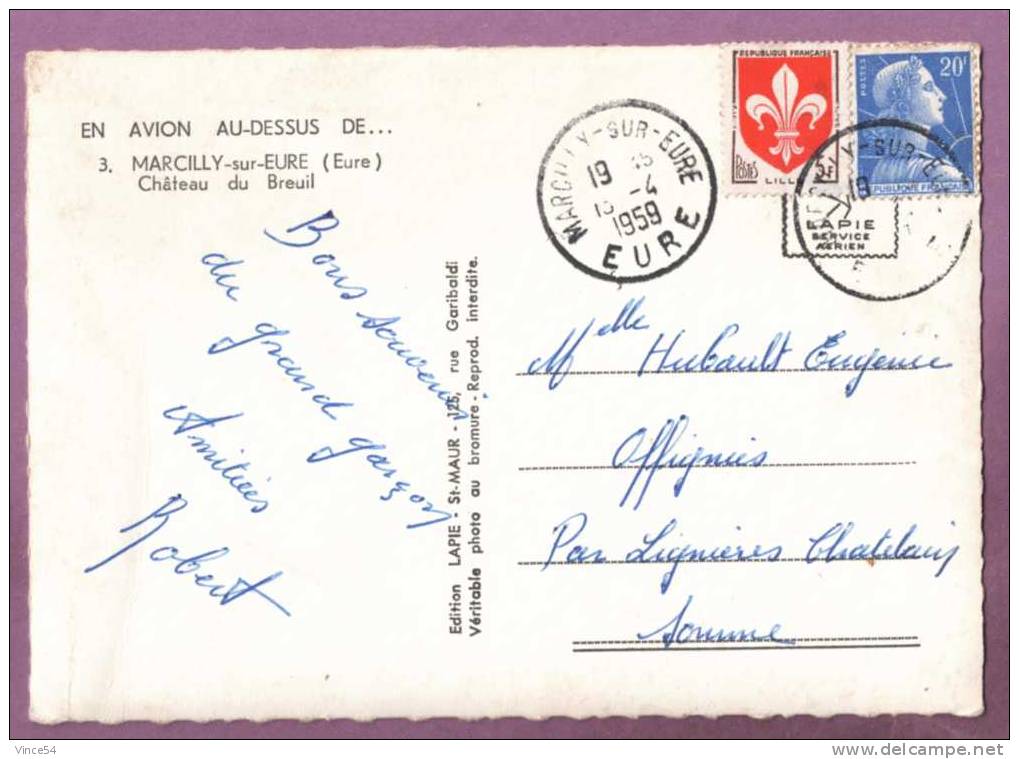 EN AVION AU-DESSUS DE...
3. MARCILLY-sur-EURE (Eure)
Château du Breuil
Bons souvenirs
du grand garçon
Amitiés
Robert
Edition LAPIE - St-MAUR - 125, rue Garibaldi
Véritable photo au bromure - Reprod. interdite.
MARCILLY-SUR-EURE
19
-4
1959
EURE
REPUBLIQUE FRANÇAISE
POSTES
LILLE
5F
POSTES
20F
REPUBLIQUE FRANÇAISE
LY-SUR-E
19
LAPIE
SERVICE
AERIEN
Melle Hubault Eugénie
Offignies
Par Lignières Chatelain
Somme
Vince54
http://www.delcampe.net